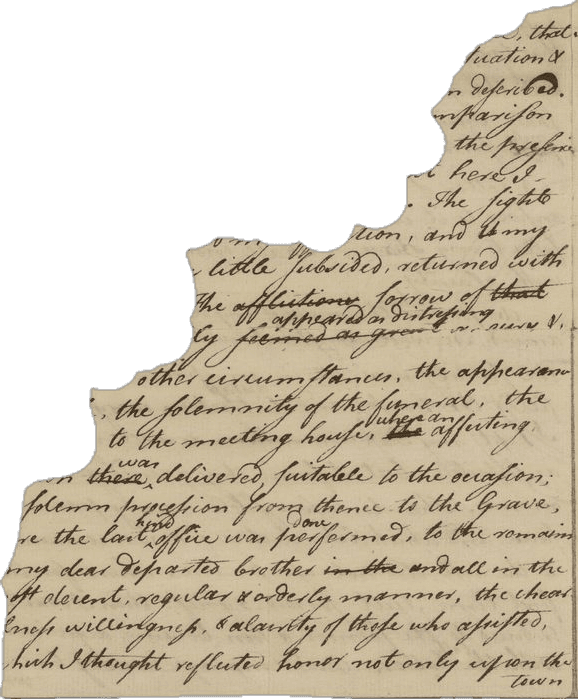 that
tuation &
n described.
mparison
the presence
here I
. The sight
tion, and my
little subsided, returned with
the afflictions sorrow of that
appeared as distressing
ly seemed as great
other circumstances, the appearance
, the solemnity of the funeral, the
where an
to the meeting house, the affecting
was
on there delivered, suitable to the occasion;
solemn procession from thence to the Grave,
kind done
re the last office was performed, to the remains
my dear departed brother in the and all in the
st decent, regular & orderly manner, the chear
lness willingness, & alacrity of those who assisted,
which I thought reflected honor not only upon the
town